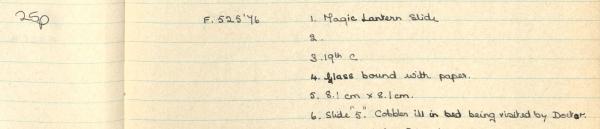 25p
F. 525'76
1. Magic Lantern Slide
2.
3. 19th C
4. Glass bound with paper.
5. 8.1 cm x 8.1 cm.
6. Slide "5". Cobbler ill in bed being visited by Doctor.